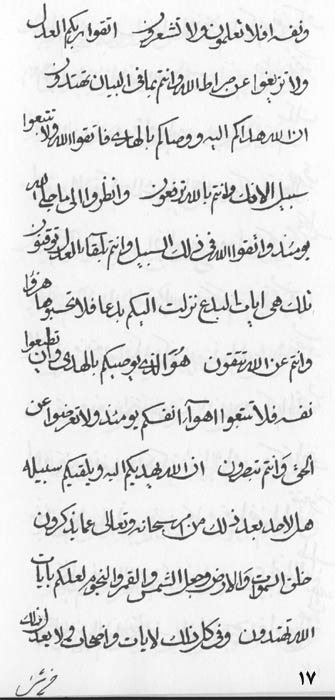 ونفسه افلا تعلمون ولا تشعرون اتقوا ربكم العدل
ولا تزيغوا عن صراط الله وانتم بما فى البيان تهتدون
ان الله هداكم اليه ووصاكم بالهدى فاتقوا الله ولا تتبعوا
سبيل الافك وانتم بالله ترفعون وانظروا الى ما جاء الله
يومئذ واتقوا الله فى ذلك السبيل وانتم بلقاء العدل توقنون
تلك هى ايات البدع نزلت اليكم بدعا فلا تحسبوها هزوا
وانتم عن الله تتقون هو الذى يوصيكم بالهدى وان تطيعوا
نفسه فلا تتبعوا اهواء انفسكم يومئذ ولا تعرضوا عن
الحق وانتم تبصرون ان الله يهديكم اليه ويلقيكم سبيله
هل لاحد بعد ذلك من سبحانه وتعالى عما يذكرون
خلق السموات والارض وجعل الشمس والقمر والنجوم لعلكم بايات
الله تهتدون وفى كل ذلك لايات واضحات ولا بعد ذلك
١٧